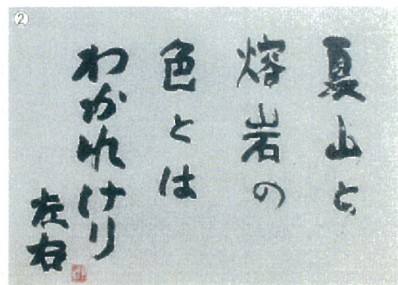 ②
夏山と
熔岩の
色とは
わかれけり
左右